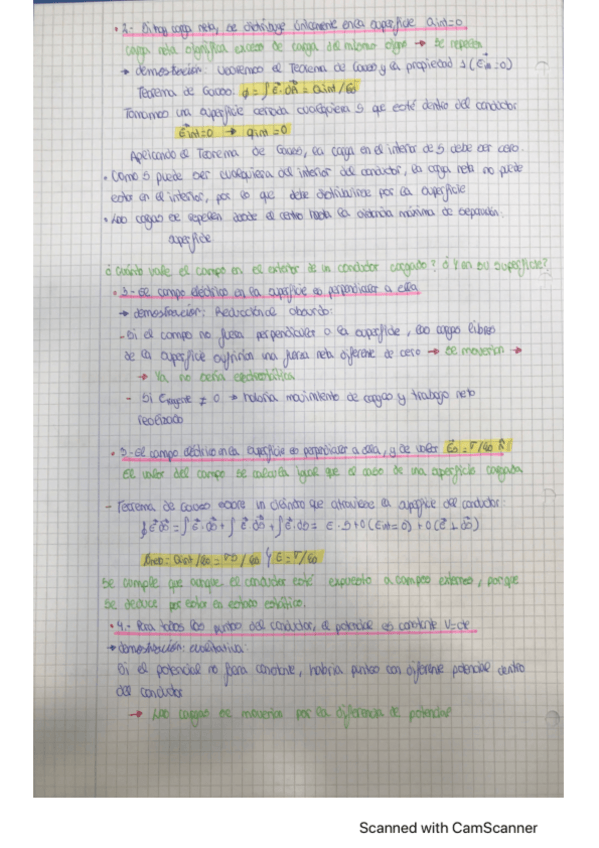 2.- Si hay carga neta, se distribuye únicamente en la superficie qint=0
carga neta significa exceso de carga del mismo signo → se repelen
→ demostración: usaremos el Teorema de Gauss y la propiedad 1 (Ein=0)
Teorema de Gauss: ϕ = ∫E·dA = qint/ε0
Tomamos una superficie cerrada cualquiera S que esté dentro del conductor
Eint=0 → qint=0
Aplicando el Teorema de Gauss, la carga en el interior de S debe ser cero.
• Como S puede ser cualquiera al interior del conductor, la carga neta no puede
estar en el interior, por lo que debe distribuirse por la superficie
• Las cargas se repelen desde el centro hasta la distancia máxima de separación:
superficie
¿Cuánto valle el campo en el exterior de un conductor cargado? ¿Y en su superficie?
• 3.- El campo eléctrico en la superficie es perpendicular a ella
→ demostración: Reducción al absurdo:
- Si el campo no fuera perpendicular a la superficie, las cargas libres
de la superficie sufrirían una fuerza neta diferente de cero → se moverían →
→ Ya no sería electrostática
- Si ≠ 0 → habría movimiento de cargas y trabajo neto
realizado
• 3.- El campo eléctrico en la superficie es perpendicular a ella, y de valor
El valor del campo se calcula igual que el caso de una superficie cargada
- Teorema de Gauss sobre un cilindro que atraviese la superficie del conductor:
∮E·dS = ∫E·dS + ∫E·dS + ∫E·dS = E·S + 0 (Eint=0) + 0 (E⊥dS)
qint/ε0 = σS/ε0 y E = σ/ε0
Se cumple que aunque el conductor esté expuesto a campos externos, porque
se deduce por estar en estado estático.
• 4.- Para todos los puntos del conductor, el potencial es constante V=cte
→ demostración: cualitativa:
Si el potencial no fuera constante, habría puntos con diferente potencial dentro
del conductor
→ Las cargas se moverían por la diferencia de potencial
Scanned with CamScanner